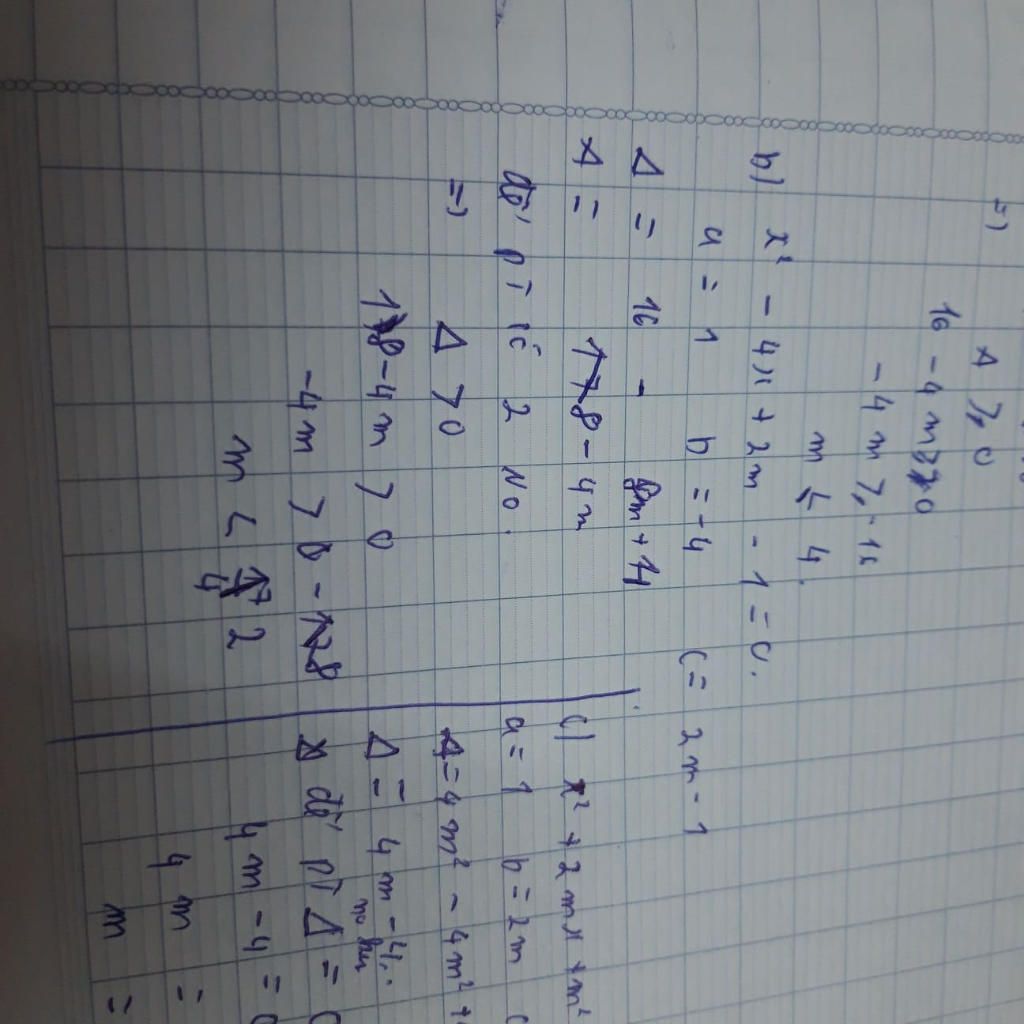 =)
Δ ⩾ 0
16 - 4m ⩾ 0
-4m ⩾ -16
m ≤ 4.
b) x² - 4x + 2m - 1 = 0.
a = 1 b = -4 c = 2m - 1
Δ = 16 - 8m + 4
Δ = 8 - 4m
để pt có 2 No.
=) Δ > 0
8 - 4m > 0
-4m > 0 - 8
m < 2
c) x² + 2mx + m²
a = 1 b = 2m c
Δ = 4m² - 4m² +
Δ = 4m - 4.
để pt Δ = 0
4m - 4 = 0
4m =
m =